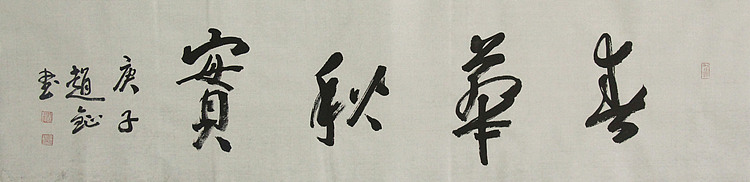 春華秋實
庚子
趙鉞
書